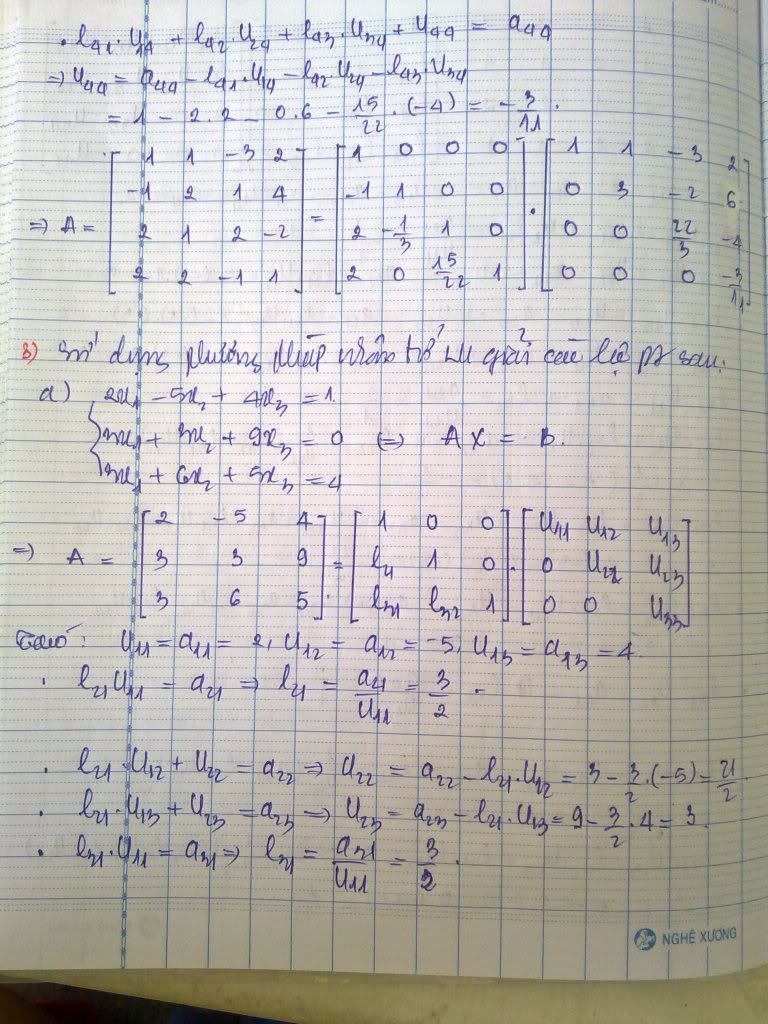 . l₄₁.U₁₄ + l₄₂.U₂₄ + l₄₃.U₃₄ + U₄₄ = a₄₄
=> U₄₄ = a₄₄ - l₄₁.U₁₄ - l₄₂.U₂₄ - l₄₃.U₃₄
= 1 - 2.2 - 0.6 - 15/22.(-4) = -3/11.
=> A = [1 1 -3 2; -1 2 1 4; 2 1 2 -2; 2 2 -1 1] = [1 0 0 0; -1 1 0 0; 2 -1/3 1 0; 2 0 15/22 1] . [1 1 -3 2; 0 3 -2 6; 0 0 22/3 -4; 0 0 0 -3/11]
3) Sử dụng phương pháp nhân tử LU giải các hệ pt sau:
a) { 2x₁ - 5x₂ + 4x₃ = 1
3x₁ + 3x₂ + 9x₃ = 0 <=> AX = B.
3x₁ + 6x₂ + 5x₃ = 4
=> A = [2 -5 4; 3 3 9; 3 6 5] = [1 0 0; l₂₁ 1 0; l₃₁ l₃₂ 1] . [U₁₁ U₁₂ U₁₃; 0 U₂₂ U₂₃; 0 0 U₃₃]
Ta có: U₁₁ = a₁₁ = 2, U₁₂ = a₁₂ = -5, U₁₃ = a₁₃ = 4.
. l₂₁U₁₁ = a₂₁ => l₂₁ = a₂₁/U₁₁ = 3/2.
. l₂₁.U₁₂ + U₂₂ = a₂₂ => U₂₂ = a₂₂ - l₂₁.U₁₂ = 3 - 3/2.(-5) = 21/2.
. l₂₁.U₁₃ + U₂₃ = a₂₃ => U₂₃ = a₂₃ - l₂₁.U₁₃ = 9 - 3/2.4 = 3.
. l₃₁.U₁₁ = a₃₁ => l₃₁ = a₃₁/U₁₁ = 3/2.
NGHỆ XƯƠNG